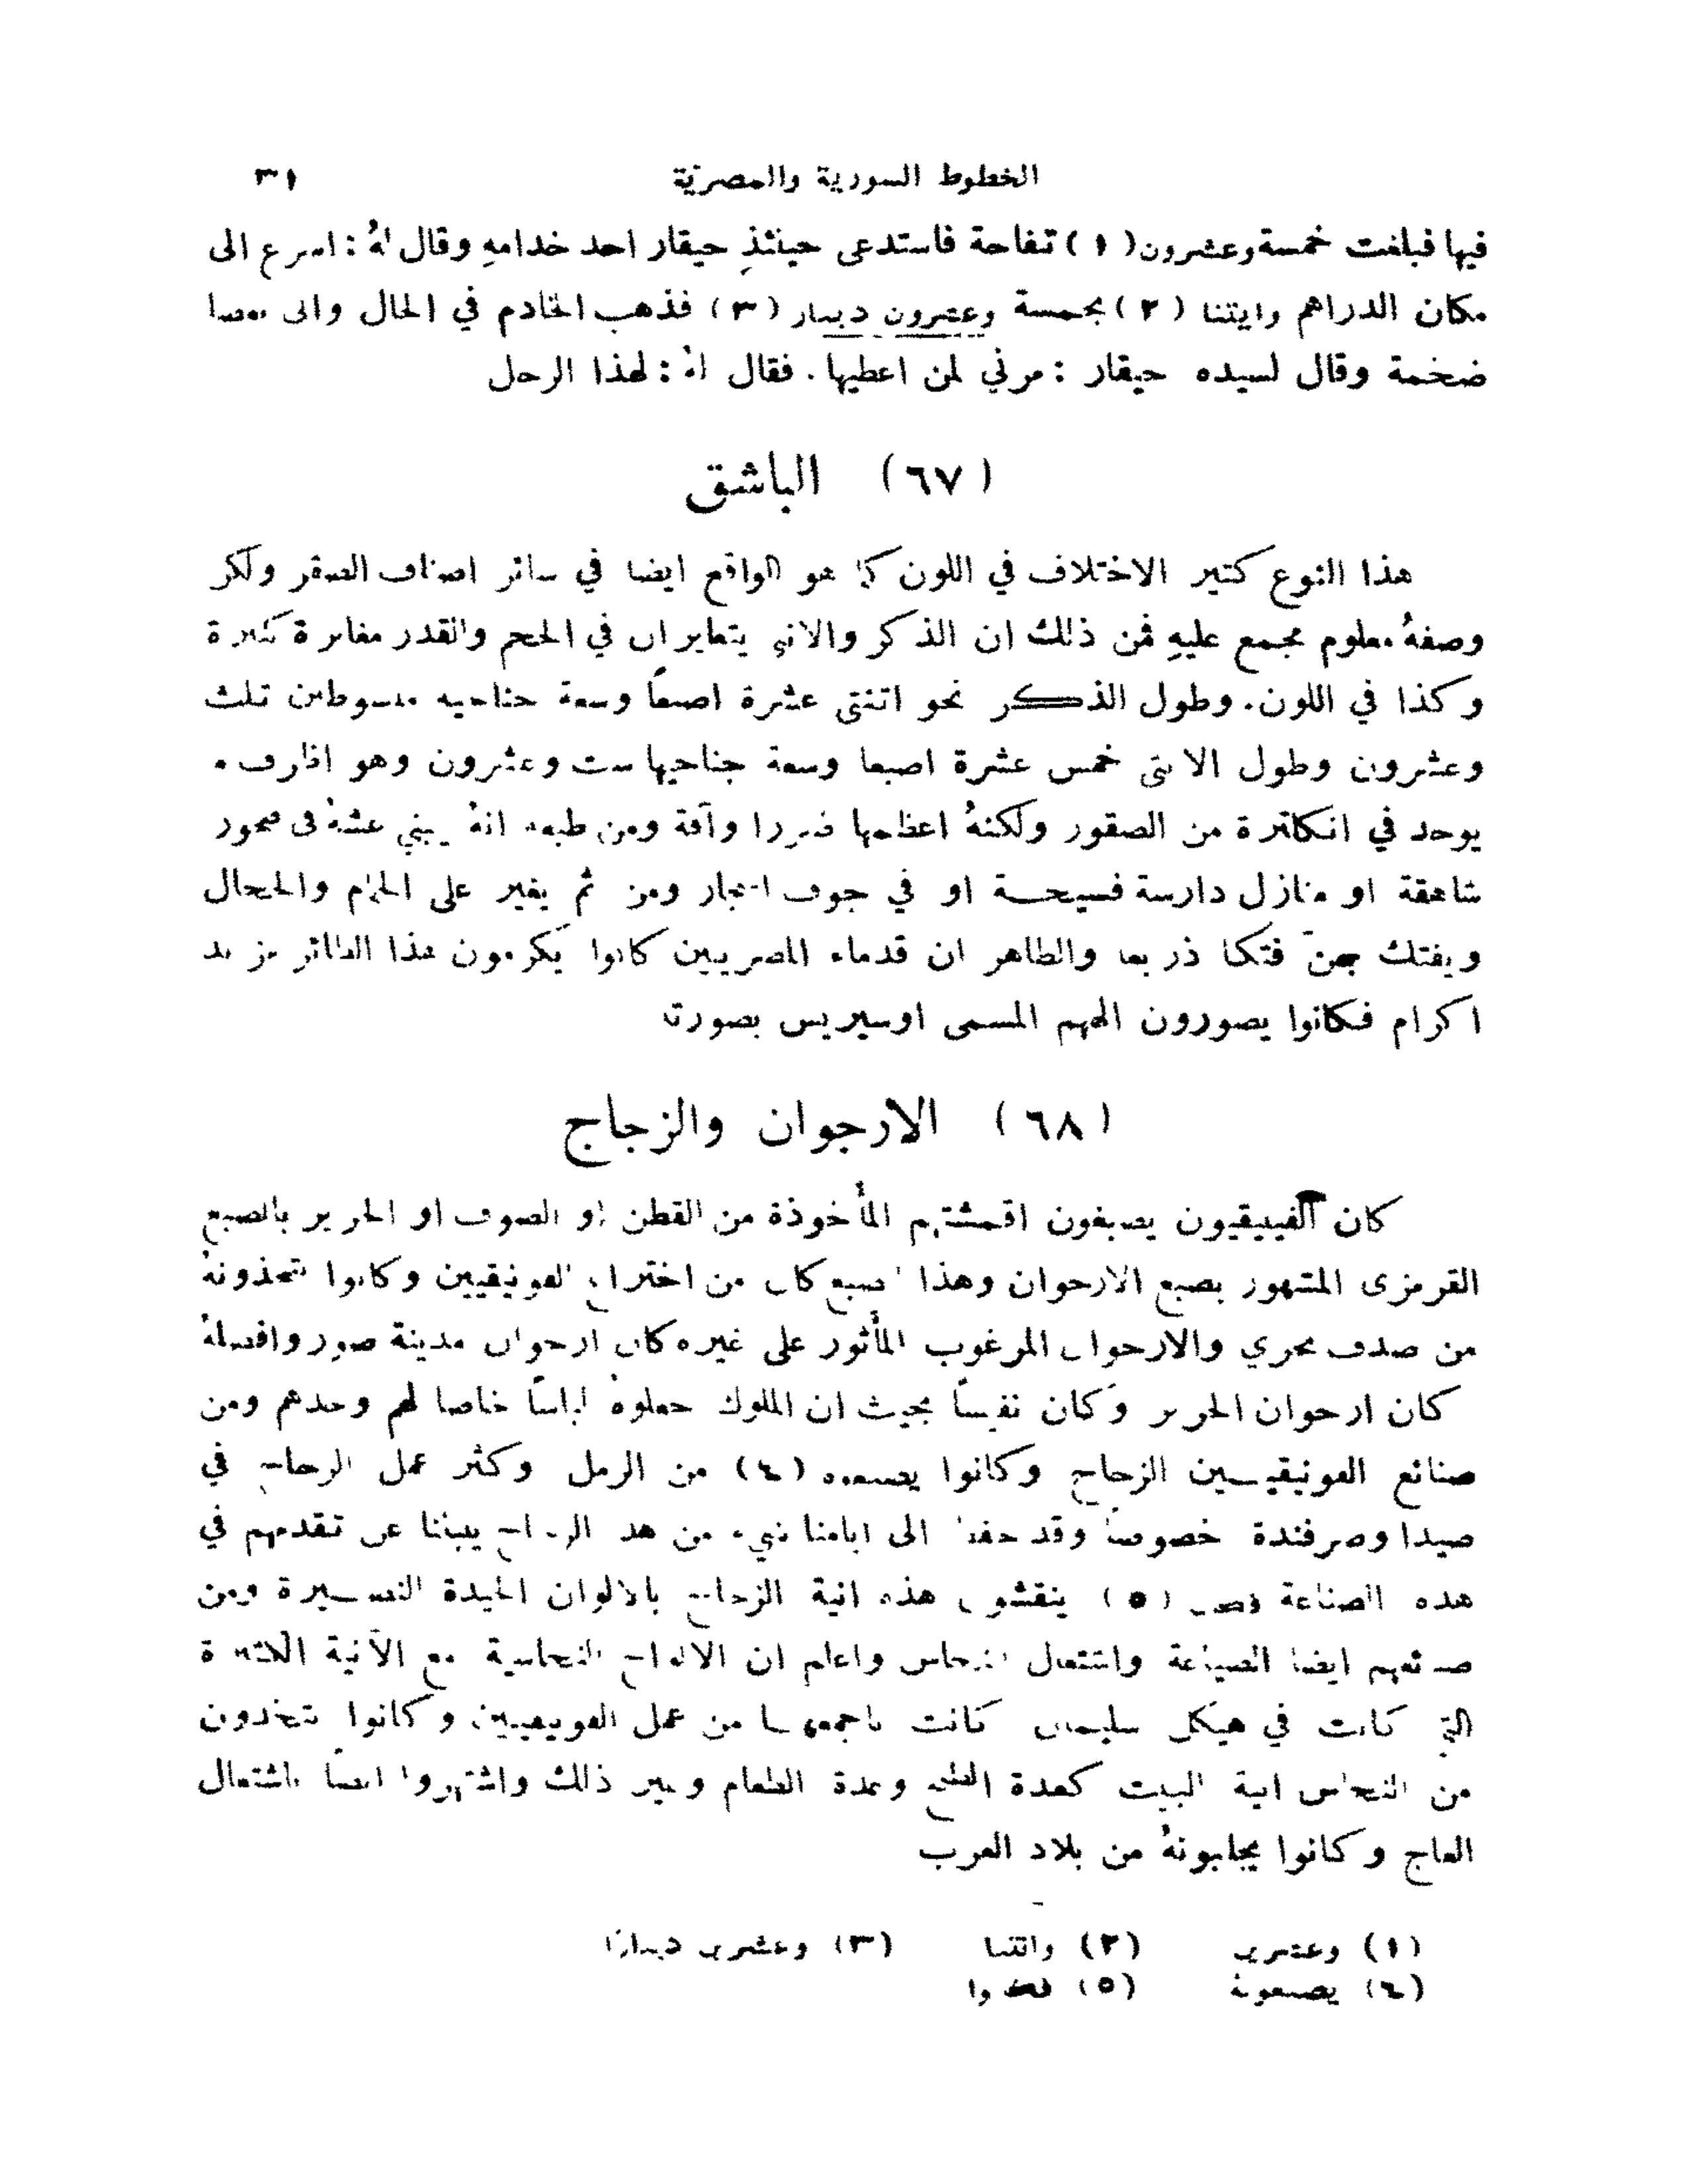 الخطوط السورية والمصرية ٣١
فيها فبلغت خمسة وعشرون (١) تفاحة فاستدعى حينئذٍ حيقار احد خدامهِ وقال لهُ : اسرع الى
مكان الدراهم وايتنا (٢) بجمسة وعشرون دينار (٣) فذهب الخادم في الحال واتى
ضخمة وقال لسيده حيقار : مرني لمن اعطيها . فقال لهُ : لهذا الرجل
(٦٧) الباشق
هذا النوع كثير الاختلاف في اللون كما هو الواقع ايضا في سائر اصناف الصقر ولكن
وصفهُ معلوم مجمع عليهِ فمن ذلك ان الذكر والانثى يتغايران في الحجم والقدر مغايرة كثيرة
وكذا في اللون . وطول الذكر نحو اثنتى عشرة اصبعاً وسعة جناحيه مبسوطين ثلث
وعشرون وطول الانثى خمس عشرة اصبعا وسعة جناحيها ست وعشرون وهو اظرف ما
يوجد في انكلترة من الصقور ولكنهُ اعظمها ضررا وآفة ومن طبعه انهُ يبني عشهُ في صخور
شاهقة او منازل دارسة فسيحة او في جوف اشجار ومن ثم يغير على الحمام والحجال
ويفتك بهنّ فتكا ذريعا والظاهر ان قدماء المصريين كانوا يكرمون هذا الطائر مزيد
اكرام فكانوا يصورون الههم المسمى اوسيريس بصورته
(٦٨) الارجوان والزجاج
كان الفينيقيون يصبغون اقمشتهم المأخوذة من القطن او الصوف او الحرير بالصبغ
القرمزى المشهور بصبغ الارجوان وهذا الصبغ كان من اختراع الفونيقيين وكانوا يتخذونهُ
من صدف بحري والارجوان المرغوب المأثور على غيره كان ارجوان مدينة صور وافضلهُ
كان ارجوان الحرير وكان نفيساً بحيث ان الملوك جعلوهُ لباساً خاصا لهم وحدهم ومن
صنائع الفونيقيين الزجاج وكانوا يصنعوه (٤) من الرمل وكثر عمل الزجاج في
صيدا وصرفندة خصوصاً وقد حفظ الى ايامنا شيء من هذا الزجاج ينبئنا عن تقدمهم في
هذه الصناعة (٥) ينقشون هذه انية الزجاج بالالوان الجيدة النضيرة ومن
صنائعهم ايضا الصياغة واشتغال النحاس واعلم ان الالواح النحاسية مع الآنية الكثيرة
التي كانت في هيكل سليمان كانت باجمعها من عمل الفونيقيين وكانوا يتخذون
من النحاس انية البيت كعدة الطبخ وعدة الطعام وغير ذلك واشتهروا ايضاً باشتغال
العاج وكانوا يجلبونهُ من بلاد العرب
(١) وعشرين (٢) وائتنا (٣) وعشرين دينارًا
(٤) يصنعونهُ (٥)